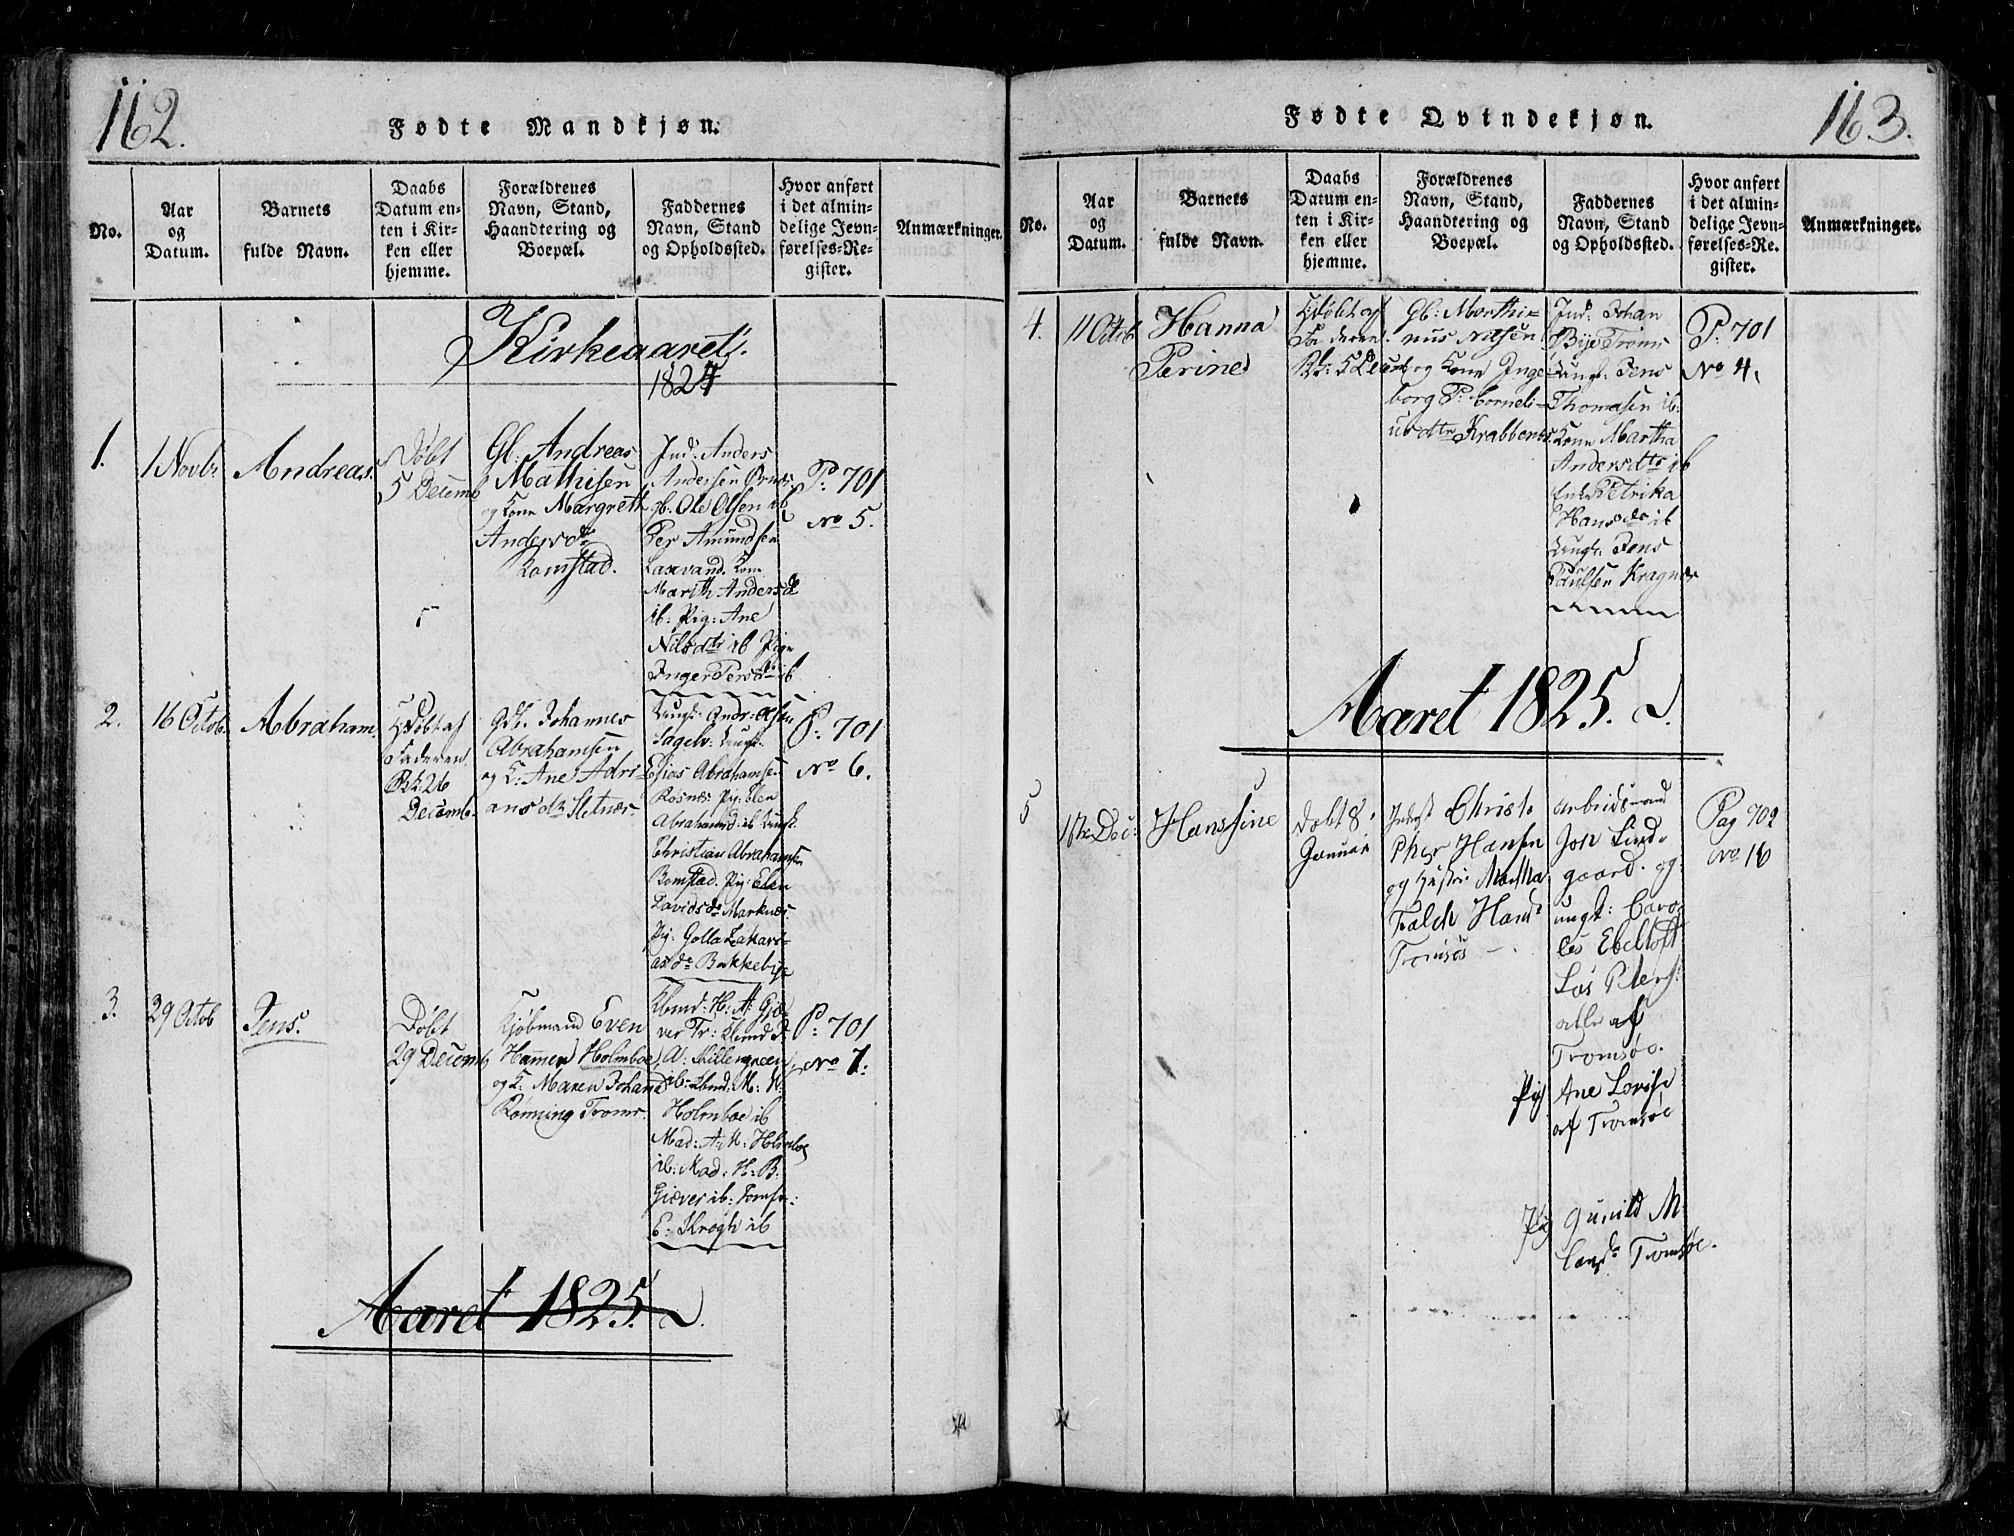 162.
Fødte Mandkjøn.
No.
Aar
og
Datum.
Barnets
fulde Navn.
Daabs
Datum en-
ten i Kir-
ken eller
hjemme.
Forældrenes
Navn, Stand,
Haandtering og
Boepæl.
Faddernes
Navn, Stand
og Opholdssted.
Hvor anført
i det almin-
delige Jevn-
førelses-Re-
gister.
Anmærkninger.
Kirkeaaret
1824
1.
1 Novbr
Andreas.
Døbt
5 Decemb
Gb. Andreas
Mathisen
og Kone Margreth
Andersdr
Komstad.
Ind. Anders
Andersen
gb. Ole Olsen ib
Per Amundsen
Laxevand. Kone
Marith Andersdr
ib. Pig: Ane
Nilsdtr ib Pige
Inger Persdr ib
P: 701
No 5.
2.
16 Octob.
Abraham.
Hdøbt af
Faderen
Bk: 26
Decemb.
Gdb. Johannes
Abrahamsen
og K: Ane Adri-
ansdr Sletnæs
Ungk: Andr: Olsen
Sagelv: Ungk.
Elias Abrahamsen
Rosnæs: Pig: Elen
Abrahamsd: ib Ungk.
Christian Abrahamsen
Bomstad. Pig: Elen
Davidsdr Marknæs
Pig: Golla Zakari-
asdr Bakkebye
P: 701
No 6.
3.
29 Octob
Jens.
Døbt
29 Decemb
Kjøbmand Even
Hammer Holmboe
og K. Maren Johane
Rønning Troms.
Kbmd: H: A: Gjæ-
ver Tr: Kbmd D.
A: Hillengreen
ib: Kbmd: M: W.
Holmboe ib
Mad: A: M: Holmboe
ib: Mad: H: B:
Giæver ib: Jomfr:
E: Krogh ib
P: 701
No 7:
Aaret 1825.
163.
Fødte Qvindekjøn.
No.
Aar
og
Datum.
Barnets
fulde Navn.
Daabs
Datum en-
ten i Kir-
ken eller
hjemme.
Forældrenes
Navn, Stand,
Haandtering og
Boepæl.
Faddernes
Navn, Stand
og Opholdssted.
Hvor anført
i det almin-
delige Jevn-
førelses-Re-
gister.
Anmærkninger.
4.
11 Octob
Hanna
Perine
Hdøbt af
Faderen
Bk: 5 Decemb
Gb: Morthi-
nus Nilsen
og Kone Inge-
borg P: Corneli-
usdtr Krabbenes
Ind. Johan
Bye Troms
Ungk: Jens
Thomasen ib:
Kone Martha
Andersdtr ib
Enke Petrika
Hansdr ib
Ungk: Jens
Paulsen Kragnæs
P: 701
No 4.
Aaret 1825.
5
16de Dec:
Hanssine
Døbt 8
Januar
Indgst Christo
pher Hansen
og Hustru Martha
Falch Hansd
Tromsøe
Arbeidsmand
Joh Lind-
gaard. og
ungk: Caro-
les Ebeltoft
Løs Peters:
alle af
Tromsøe.
Pig Ane Lovise
af Tromsøe
Pig Gunild M
Larsdr Tromsøe.
Pag 702
No 16